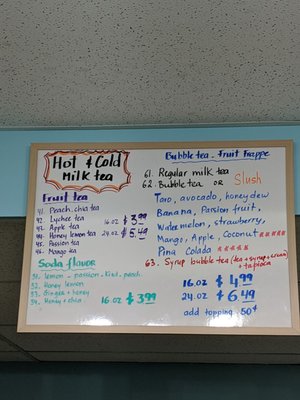 Hot & Cold
Milk tea
Fruit tea
41. Peach, chia tea
42. Lychee tea
43. Apple tea
44. Honey lemon tea
45. Passion tea
46. Mango tea
16 oz $3.99
24 oz $5.49
Soda flavor
51. lemon - passion - kiwi - peach
52. Honey lemon
53. Ginger + honey
54. Honey + chia
16 oz $3.99
Bubble tea - Fruit Frappe
61. Regular milk tea
62. Bubble tea OR Slush
Taro, avocado, honeydew
Banana, Passion fruit,
Watermelon, strawberry,
Mango, Apple, Coconut
Pina Colada
63. Syrup bubble tea (tea + syrup + cream)
+ tapioca
16 oz $4.99
24 oz $6.49
add topping 50¢